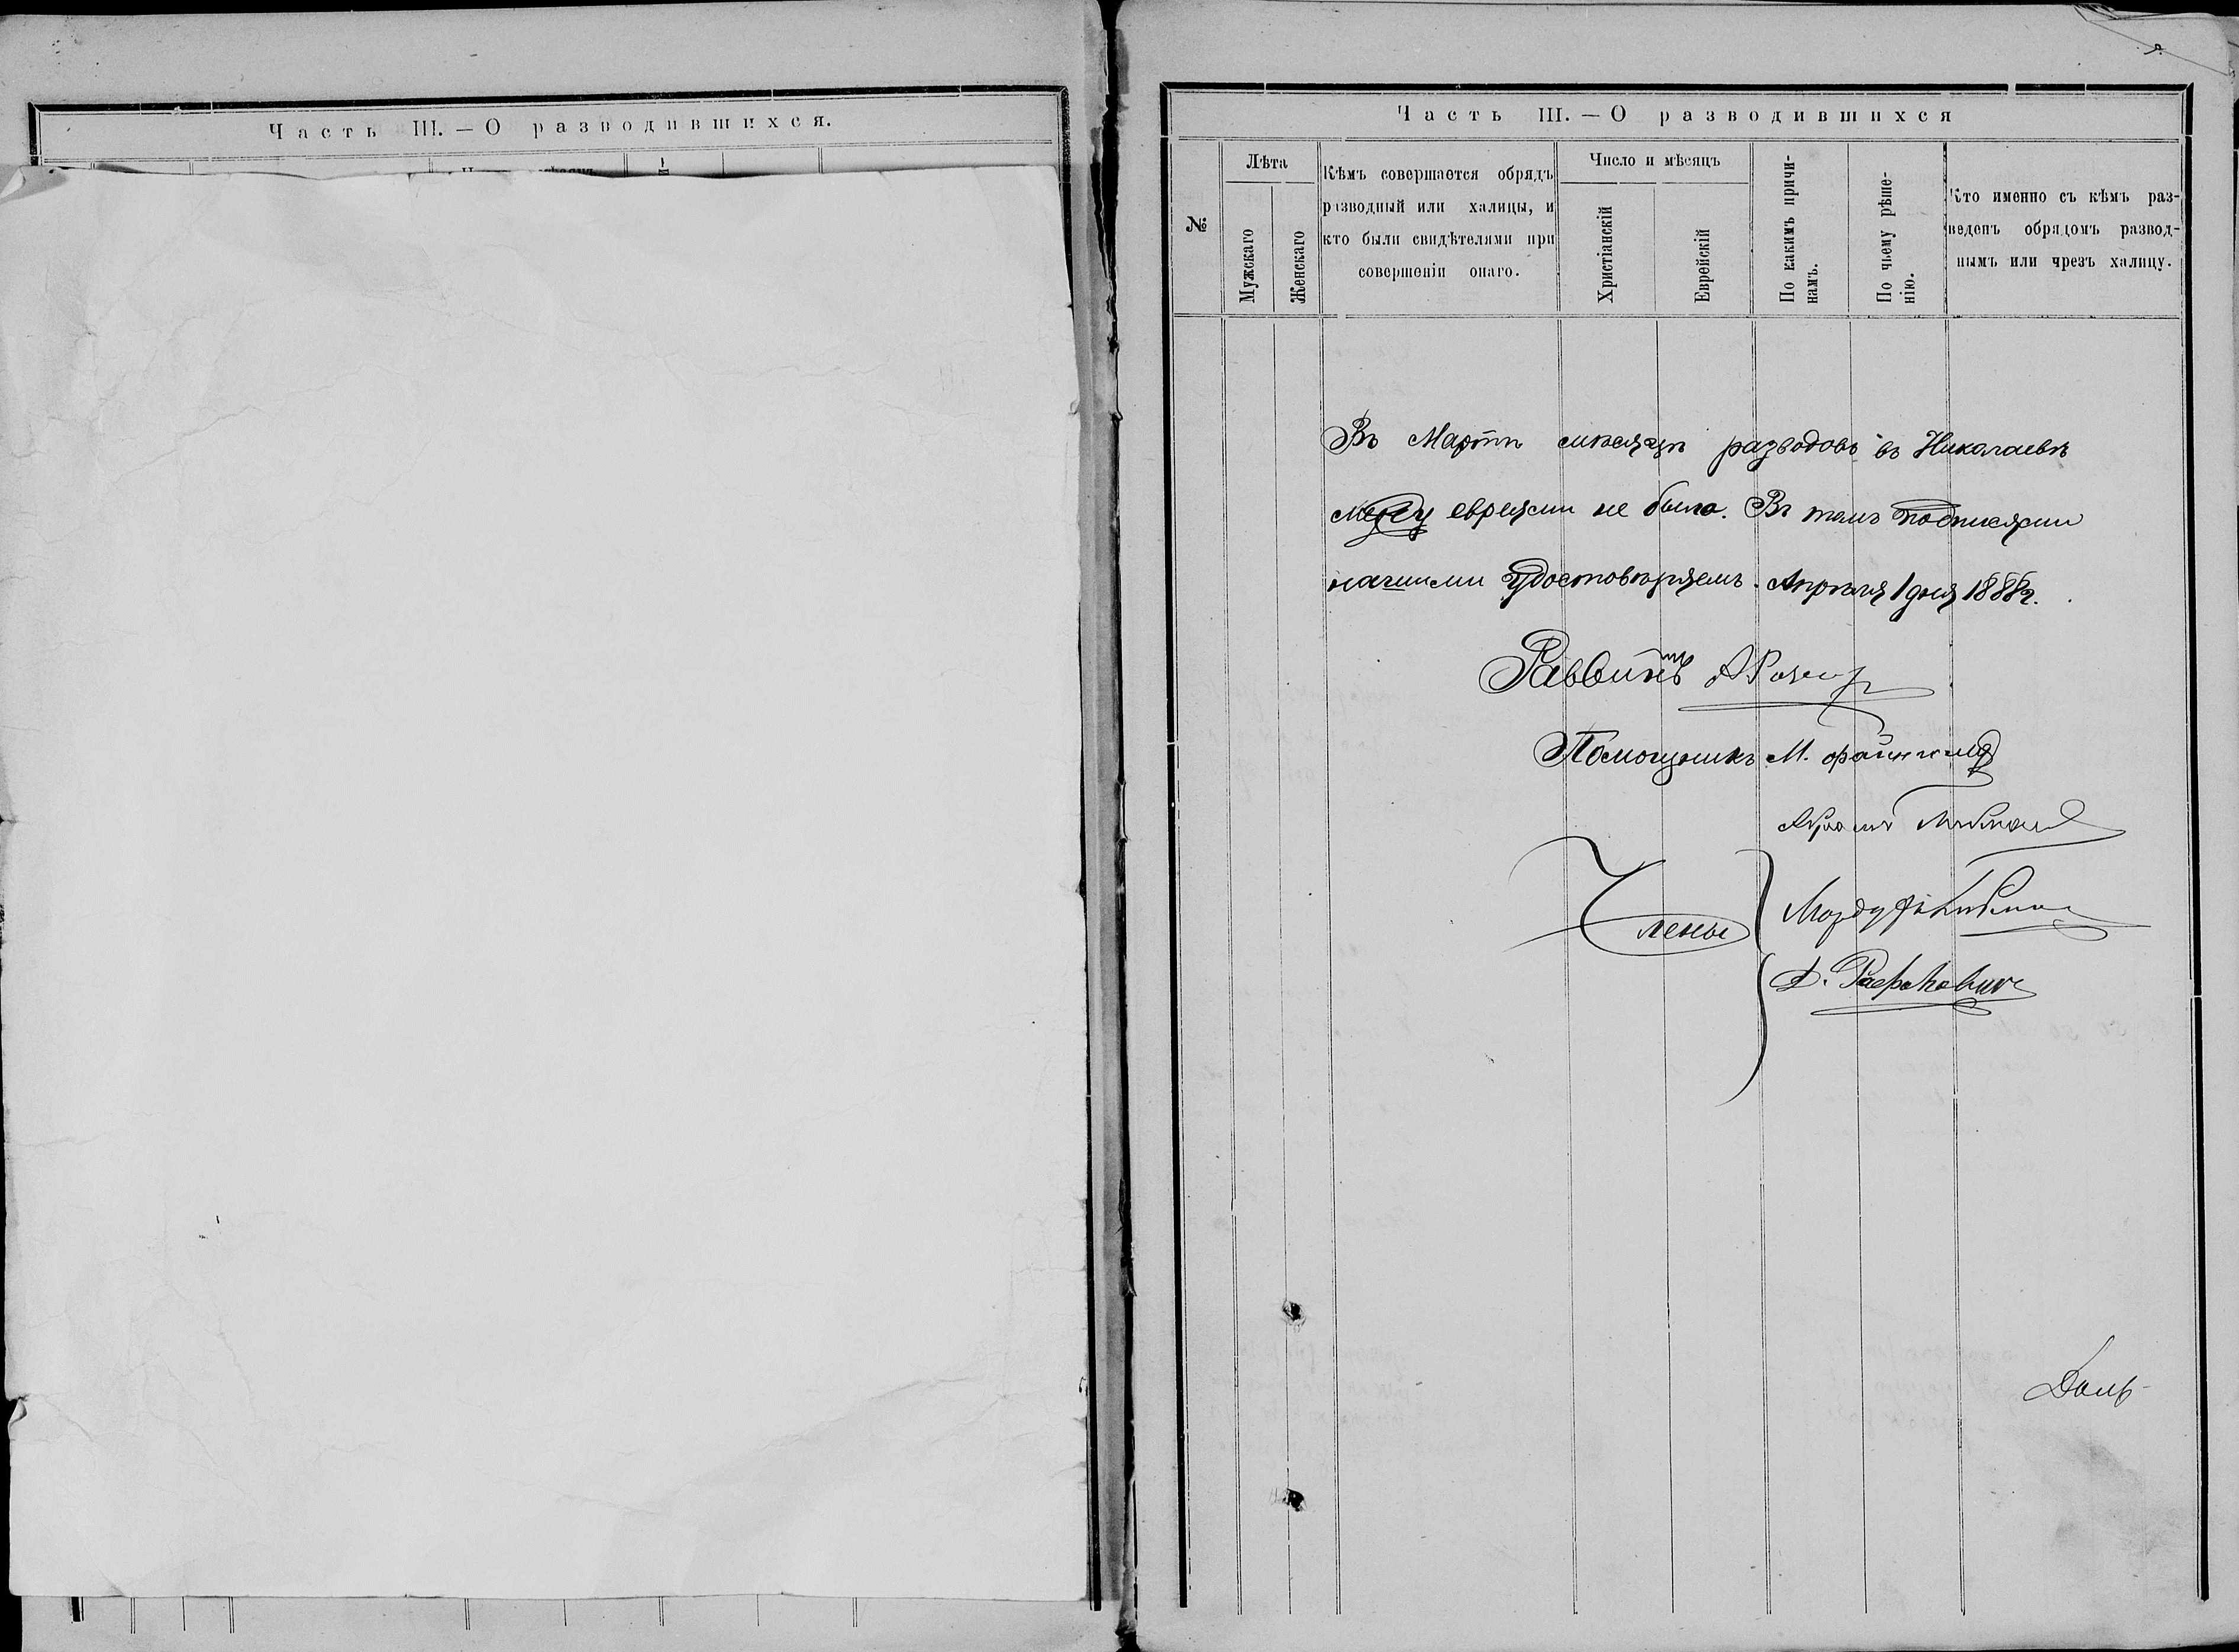 Часть III. — О разводившихся.
Часть III. — О разводившихся
№
Лѣта
Мужскаго
Женскаго
Кѣмъ совершается обрядъ
разводный или халицы, и
кто были свидѣтелями при
совершеніи онаго.
Число и мѣсяцъ
Христіанскій
Еврейскій
По какимъ причи-
намъ.
По чьему рѣше-
нію.
Кто именно съ кѣмъ раз-
веденъ обрядомъ развод-
нымъ или чрезъ халицу.
Въ Мартѣ мѣсяцѣ разводовъ въ Николаевѣ
между евреями не было. Въ томъ подписями
нашими удостовѣряемъ. Апрѣля 1 дня
Раввинъ
Помощникъ М.
Члены